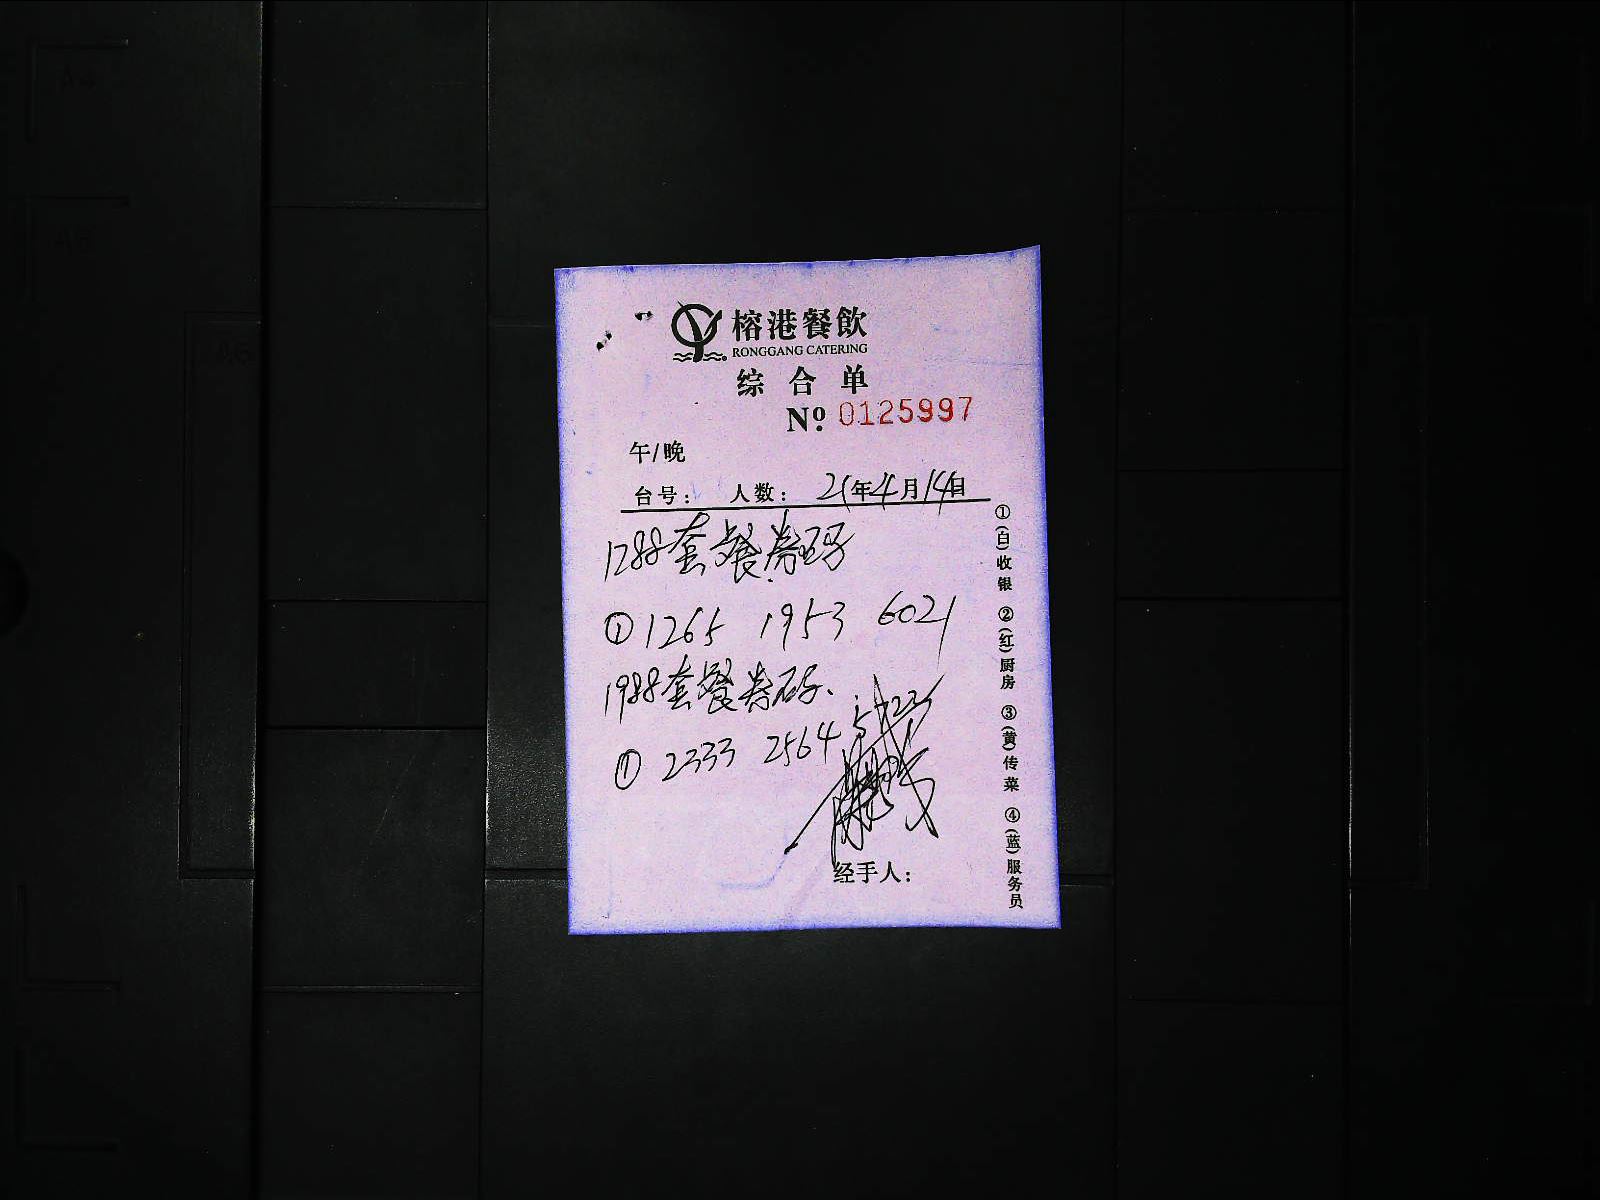 榕港餐飲
RONGGANG CATERING
综合单
Nº: 0125997
午/晚
台号: 人数: 21年4月14日
1288套餐券码
① 1265 1953 6021
1988套餐券码.
① 2333 2564
经手人:
①(白)收银 ②(红)厨房 ③(黄)传菜 ④(蓝)服务员
A4
A5